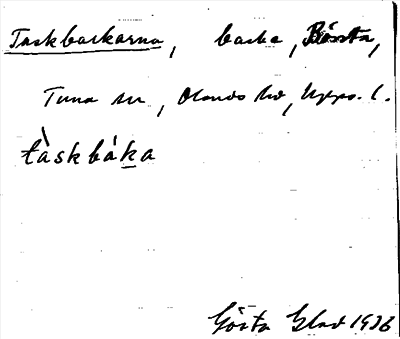 Taskbackarna, backe, Bärsta,
Tuna sn, Olands hd, Upps. l.
tàskbáka
Gösta Glad 1936